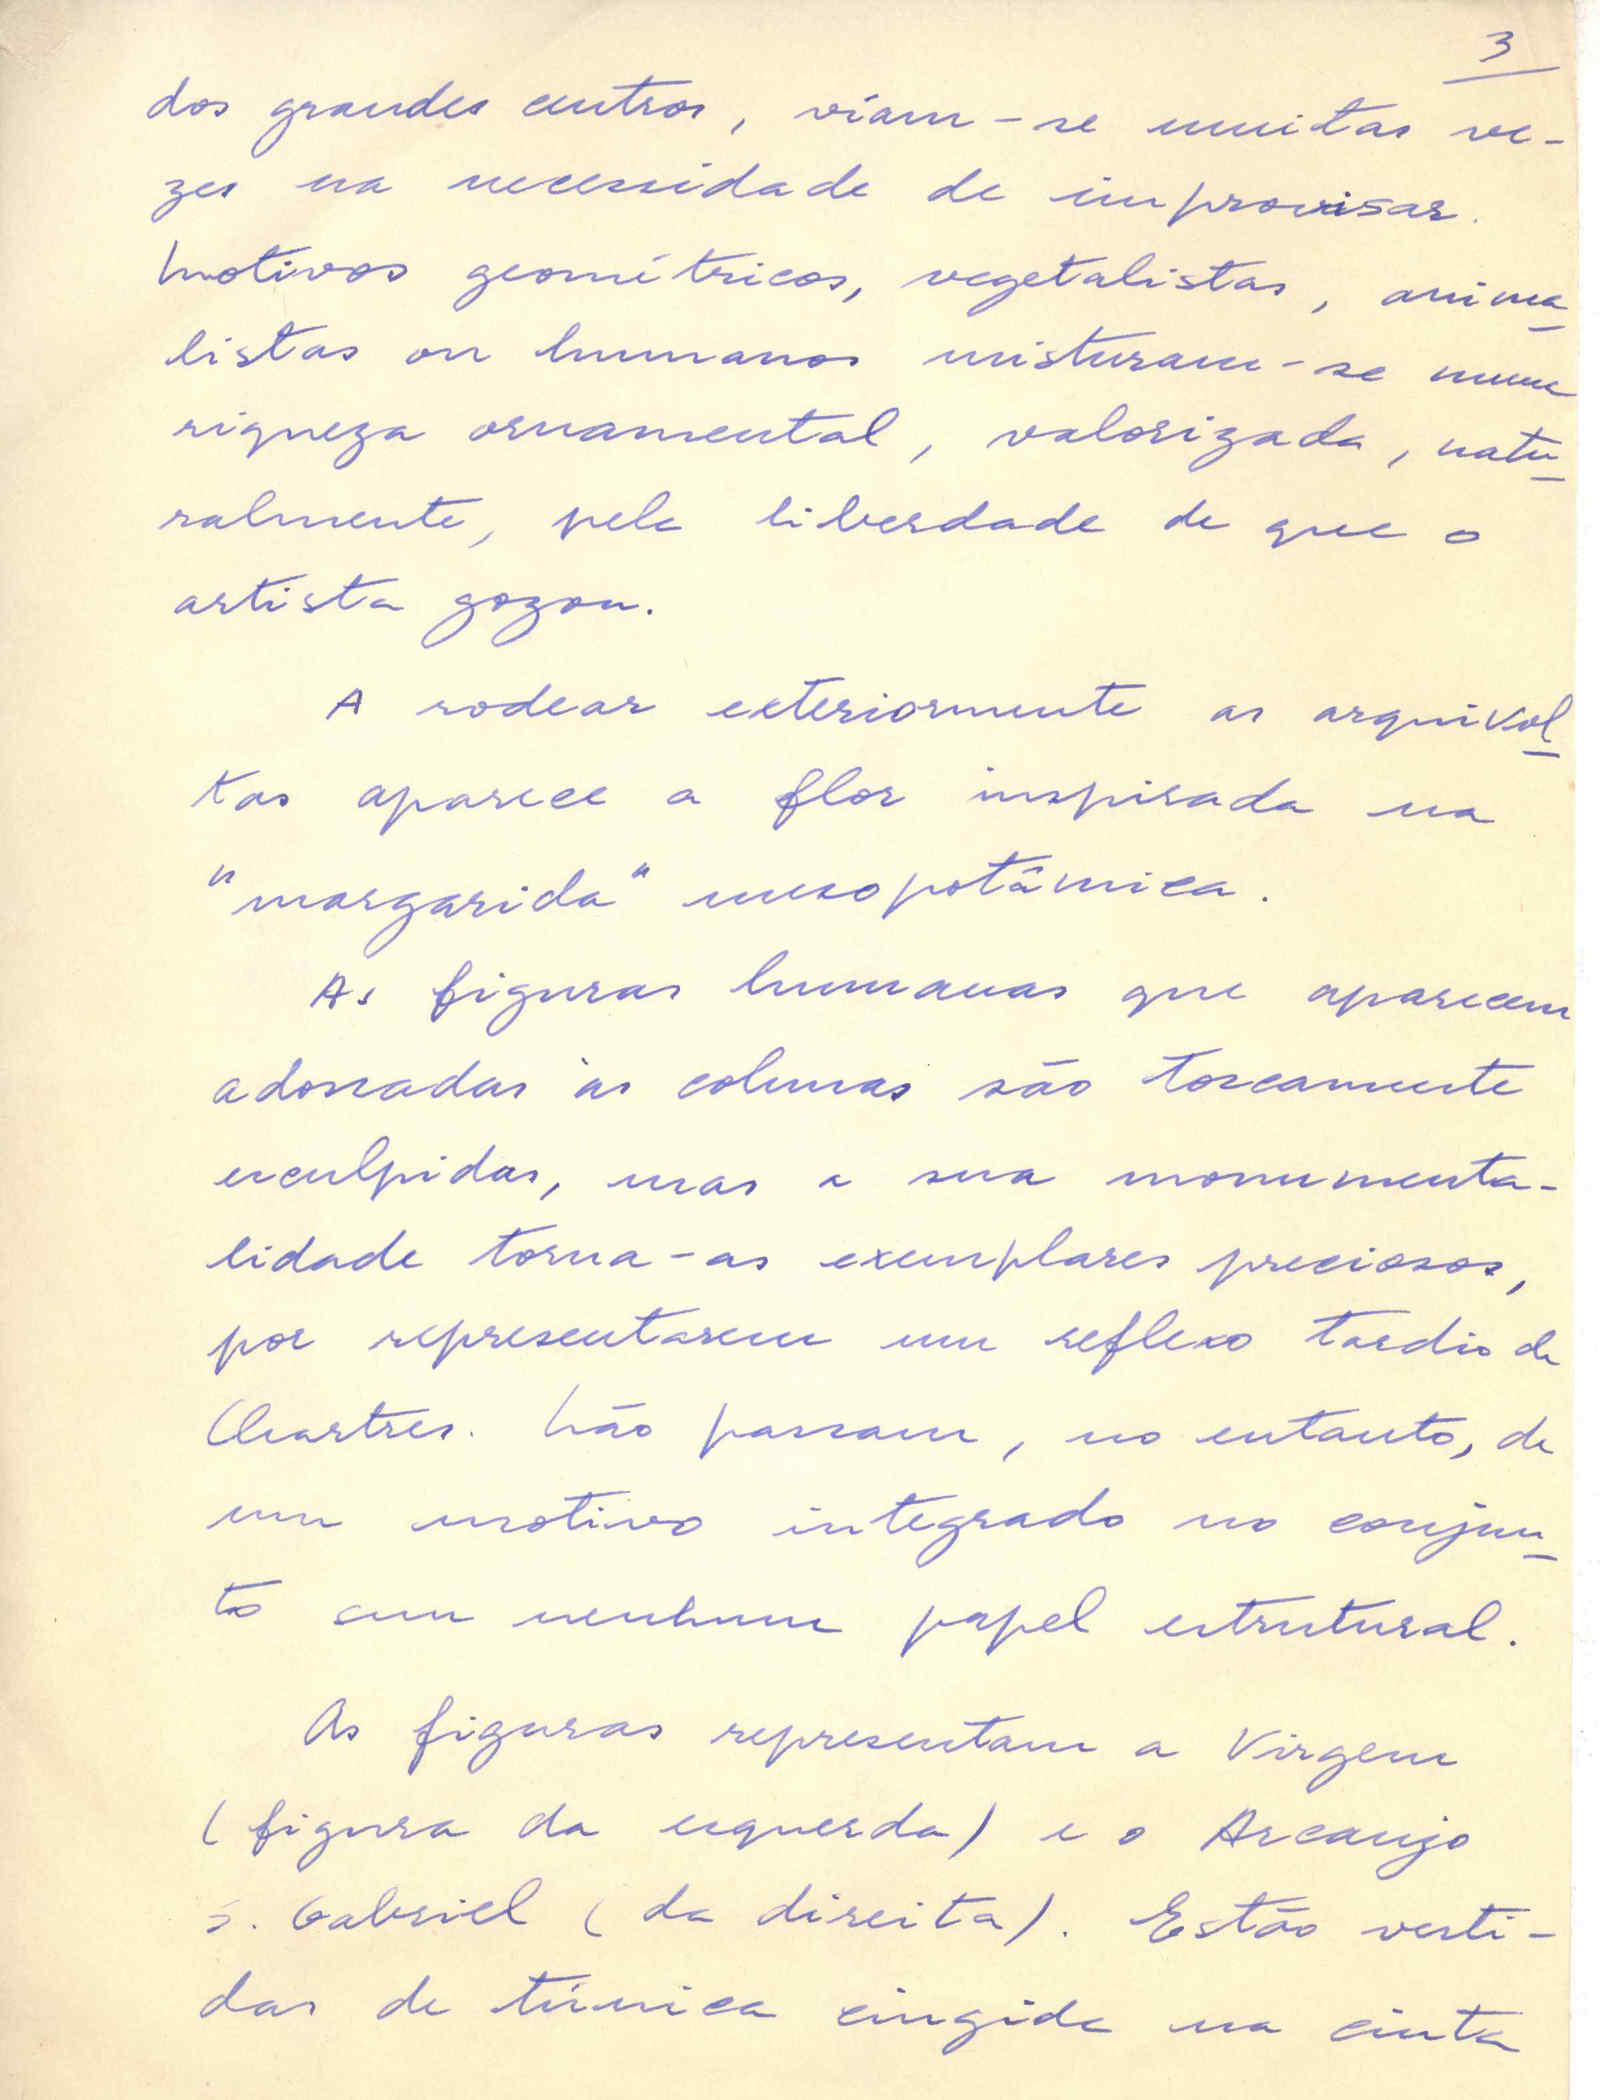 3
dos grandes centros, viam-se muitas ve-
zes na necessidade de improvisar.
Motivos geométricos, vegetalistas, anima-
listas ou humanos misturam-se numa
riqueza ornamental, valorizada, natu-
ralmente, pela liberdade de que o
artista gozou.
A rodear exteriormente as arquivol-
tas aparece a flor inspirada na
"margarida" mesopotâmica.
As figuras humanas que aparecem
adossadas às colunas são toscamente
esculpidas, mas a sua monumenta-
lidade torna-as exemplares preciosos,
por representarem um reflexo tardio de
Chartres. Não passam, no entanto, de
um motivo integrado no conjun-
to sem nenhum papel estrutural.
As figuras representam a Virgem
(figura da esquerda) e o Arcanjo
S. Gabriel (da direita). Estão vesti-
das de túnica cingida na cinta